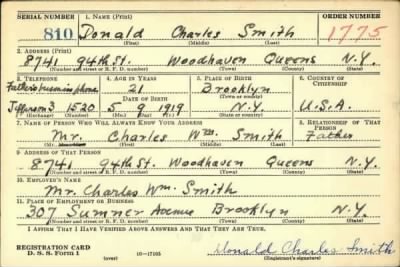 SERIAL NUMBER 1. NAME (Print) ORDER NUMBER
810 Donald Charles Smith 1775
(First) (Middle) (Last)
2. ADDRESS (Print)
8741 94th St. Woodhaven Queens N.Y.
(Number and street or R. F. D. number) (Town) (County) (State)
3. TELEPHONE 4. AGE IN YEARS 5. PLACE OF BIRTH 6. COUNTRY OF CITIZENSHIP
Father's business phone 21 Brooklyn
DATE OF BIRTH (Town or county)
Jefferson 3 1520 5 9 1919 N.Y. U.S.A.
(Exchange) (Number) (Mo.) (Day) (Yr.) (State or country)
7. NAME OF PERSON WHO WILL ALWAYS KNOW YOUR ADDRESS 8. RELATIONSHIP OF THAT PERSON
Mr. Charles Wm. Smith Father
(First) (Middle) (Last)
9. ADDRESS OF THAT PERSON
8741 94th St. Woodhaven Queens N.Y.
(Number and street or R. F. D. number) (Town) (County) (State)
10. EMPLOYER'S NAME
Mr. Charles Wm. Smith
11. PLACE OF EMPLOYMENT OR BUSINESS
307 Sumner Avenue Brooklyn N.Y.
(Number and street or R. F. D. number) (Town) (County) (State)
I AFFIRM THAT I HAVE VERIFIED ABOVE ANSWERS AND THAT THEY ARE TRUE.
REGISTRATION CARD
D. S. S. FORM 1 (over) 16-17105 Donald Charles Smith
(Registrant's signature)